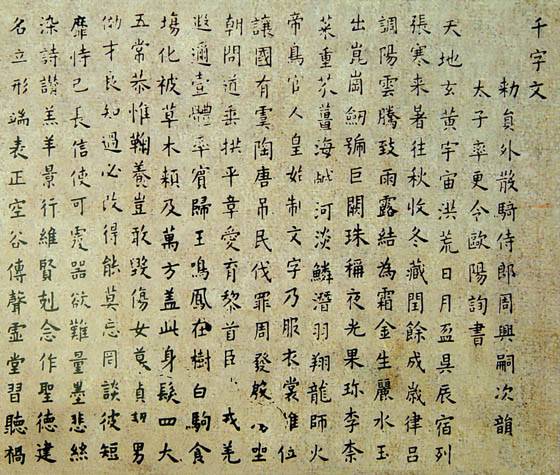 千字文
勅員外散騎侍郎周興嗣次韻
太子率更令歐陽詢書
天地玄黃宇宙洪荒日月盈昃辰宿列
張寒来暑往秋收冬藏閏餘成歲律呂
調陽雲騰致雨露結為霜金生麗水玉
出崑崗劒號巨闕珠稱夜光果珎李柰
菜重芥薑海醎河淡鱗潛羽翔龍師火
帝鳥官人皇始制文字乃服衣裳推位
讓國有虞陶唐吊民伐罪周發殷坐
朝問道垂拱平章愛育黎首臣戎羌
遐邇壹體率賓歸王鳴鳳在樹白駒食
塲化被草木賴及萬方盖此身髮四大
五常恭惟鞠養豈敢毀傷女慕貞男
效才良知過必改得能莫忘罔談彼短
靡恃己長信使可覆器欲難量墨悲絲
染詩讚羔羊景行維賢剋念作聖德建
名立形端表正空谷傳聲虛堂習聽禍